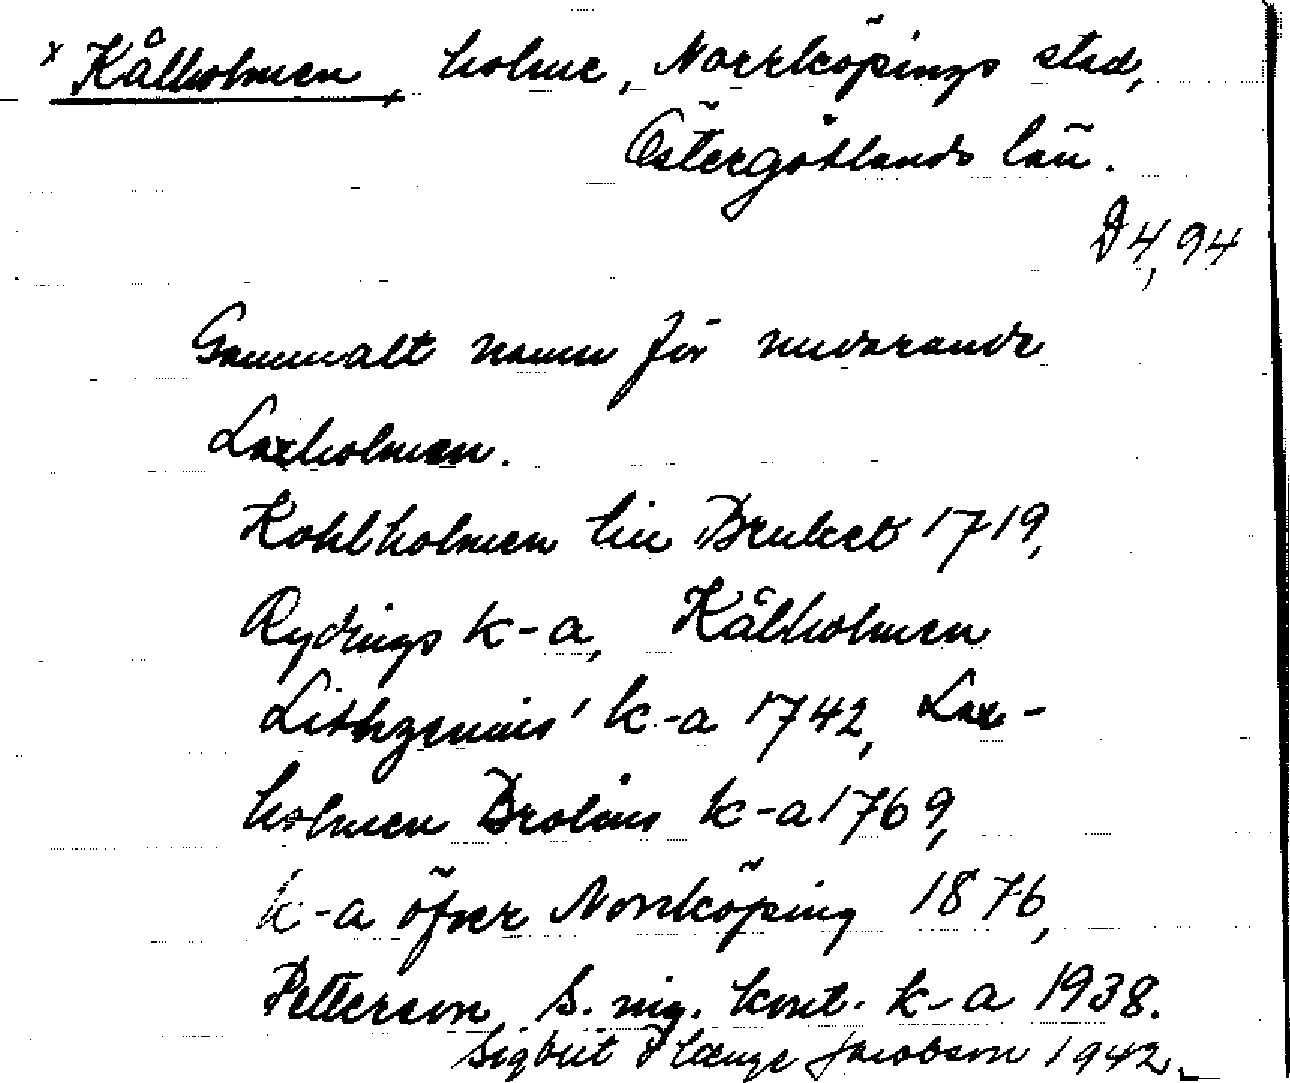 x Kålholmen, holme, Norrköpings stad,
Östergötlands län.
D 4, 94
Gammalt namn för nuvarande
Laxholmen.
Kohlholmen hin Bruket 1719,
Rydings k-a, Kålholmen
Lithzenius' k-a 1742, Lax-
holmen Brolins k-a 1769,
k-a öfver Norrköping 1876,
Petterson S. ing. kont. k-a 1938.
Sigbrit Jacobson 1942.